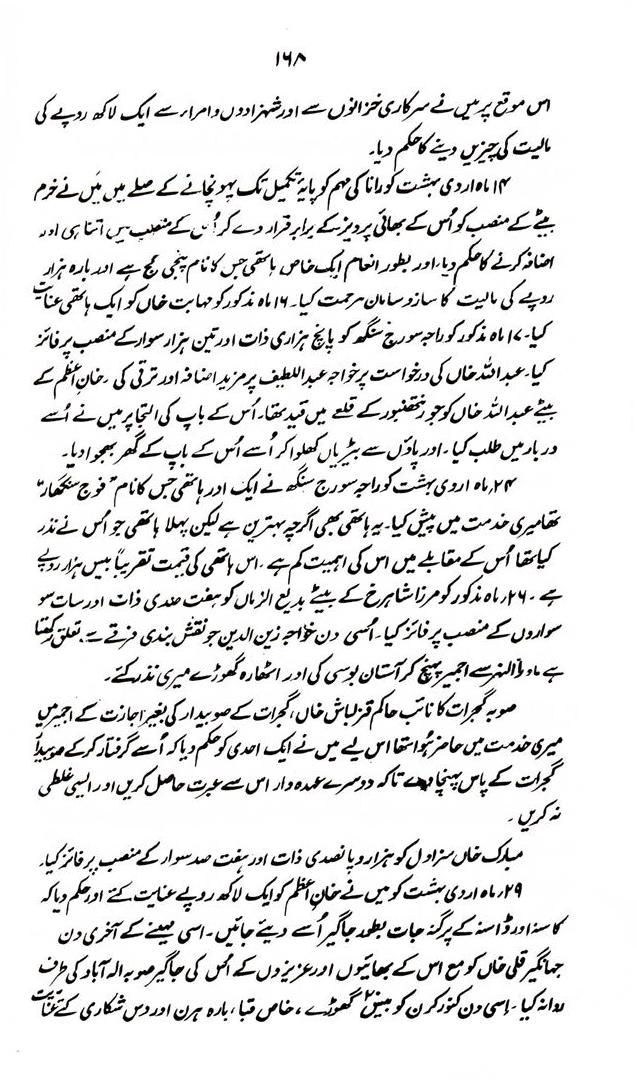 ۱۶۸
اس موقع پر میں نے سرکاری خزانوں سے اور شہزادوں و امراء سے ایک لاکھ روپے کی
مالیت کی چیزیں دینے کا حکم دیا۔
۱۴ ماہ اردی بہشت کو رانا کی مہم کو پایۂ تکمیل تک پہونچانے کے صلے میں میں نے خرم
بیٹے کے منصب کو اُس کے بھائی پرویز کے برابر قرار دے کر اُس کے منصب میں اتنا ہی اور
اضافہ کرنے کا حکم دیا، اور بطور انعام ایک خاص ہاتھی جس کا نام پنجی گج ہے اور بارہ ہزار
روپے کی مالیت کا ساز و سامان مرحمت کیا۔ ۱۶ ماہ مذکور کو مہابت خاں کو ایک ہاتھی عنایت
کیا۔ ۱۷ ماہ مذکور کو راجہ سورج سنگھ کو پانچ ہزاری ذات اور تین ہزار سوار کے منصب پر فائز
کیا۔ عبداللہ خاں کی درخواست پر خواجہ عبداللطیف پر مزید اضافہ اور ترقی کی۔ خانِ اعظم کے
بیٹے عبداللہ خاں کو جو رنتھنبور کے قلعے میں قید تھا۔ اُس کے باپ کی التجا پر میں نے اُسے
دربار میں طلب کیا۔ اور پاؤں سے بیڑیاں کھلوا کر اُسے اُس کے باپ کے گھر بھجوا دیا۔
۲۴؍ ماہ اردی بہشت کو راجہ سورج سنگھ نے ایک اور ہاتھی جس کا نام "فوج سنگھار"
تھا میری خدمت میں پیش کیا۔ یہ ہاتھی بھی اگرچہ بہترین ہے لیکن پہلا ہاتھی جو اُس نے نذر
کیا تھا اُس کے مقابلے میں اس کی اہمیت کم ہے۔ اس ہاتھی کی قیمت تقریباً بیس ہزار روپے
ہے۔ ۲۶؍ ماہ مذکور کو مرزا شاہرخ کے بیٹے بدیع الزماں کو ہفت صدی ذات اور سات سو
سواروں کے منصب پر فائز کیا۔ اُسی دن خواجہ زین الدین جو نقش بندی فرقے سے تعلق رکھتا
ہے ماوراءالنہر سے اجمیر پہنچ کر آستان بوسی کی اور اٹھارہ گھوڑے میری نذر کئے۔
صوبہ گجرات کا نائب حاکم قزلباش خاں، گجرات کے صوبیدار کی بغیر اجازت کے اجمیر میں
میری خدمت میں حاضر ہوا تھا اس لیے میں نے ایک احدی کو حکم دیا کہ اُسے گرفتار کر کے صوبیدار
گجرات کے پاس پہنچا دے تاکہ دوسرے عہدہ دار اس سے عبرت حاصل کریں اور ایسی غلطی
نہ کریں۔
مبارک خاں سزاول کو ہزار و پانصدی ذات اور ہفت صد سوار کے منصب پر فائز کیا۔
۲۹؍ ماہ اردی بہشت کو میں نے خانِ اعظم کو ایک لاکھ روپے عنایت کئے اور حکم دیا کہ
کاسنہ اور ڈاسنہ کے پرگنہ جات بطور جاگیر اُسے دیئے جائیں۔ اسی مہینے کے آخری دن
جہانگیر قلی خاں کو مع اس کے بھائیوں اور عزیزوں کے اُس کی جاگیر صوبہ الہ آباد کی طرف
روانہ کیا۔ اِسی دن کنور کرن کو بیس ۲۰ گھوڑے، خاص قبا، بارہ ہرن اور دس شکاری کتے عنایت